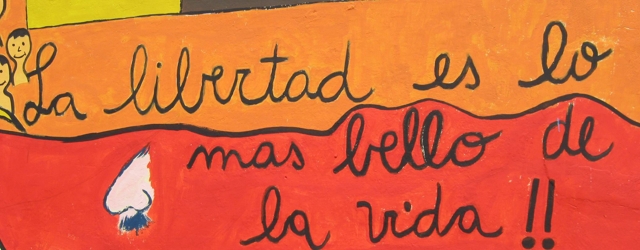 La libertad es lo
mas bello de
la vida !!